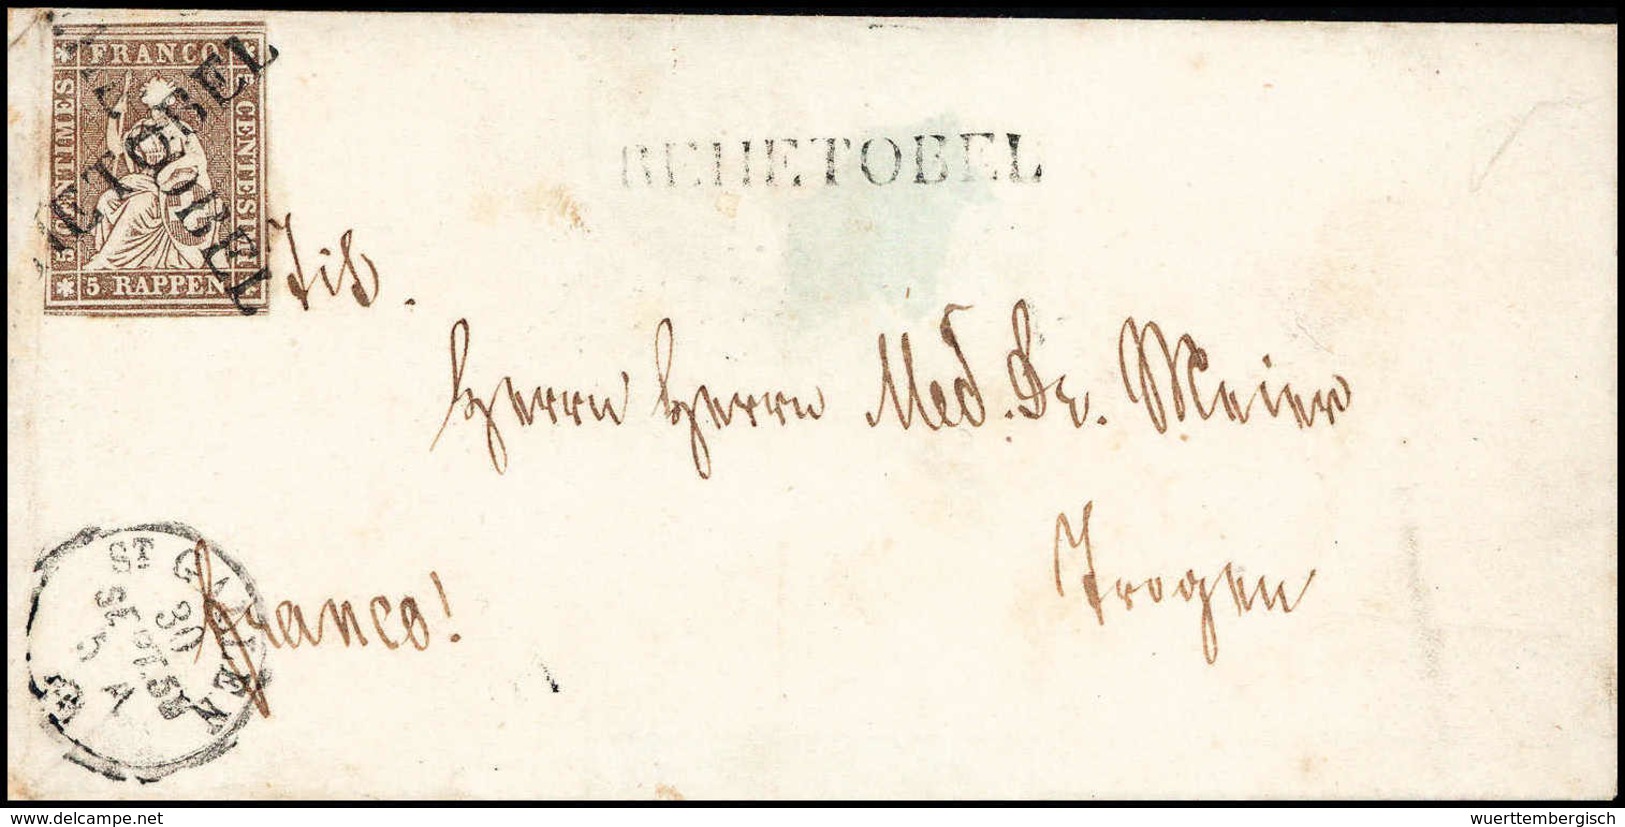 FRANCO
5 CENTIMES
5 CENTESIMI
5 RAPPEN
REHETOBEL
Tit.
Herrn Herrn Med. Dr. Meier
Trogen
franco!
ST GALLEN
30
SEPT 58
5 A
delcampe.net
wuerttembergisch